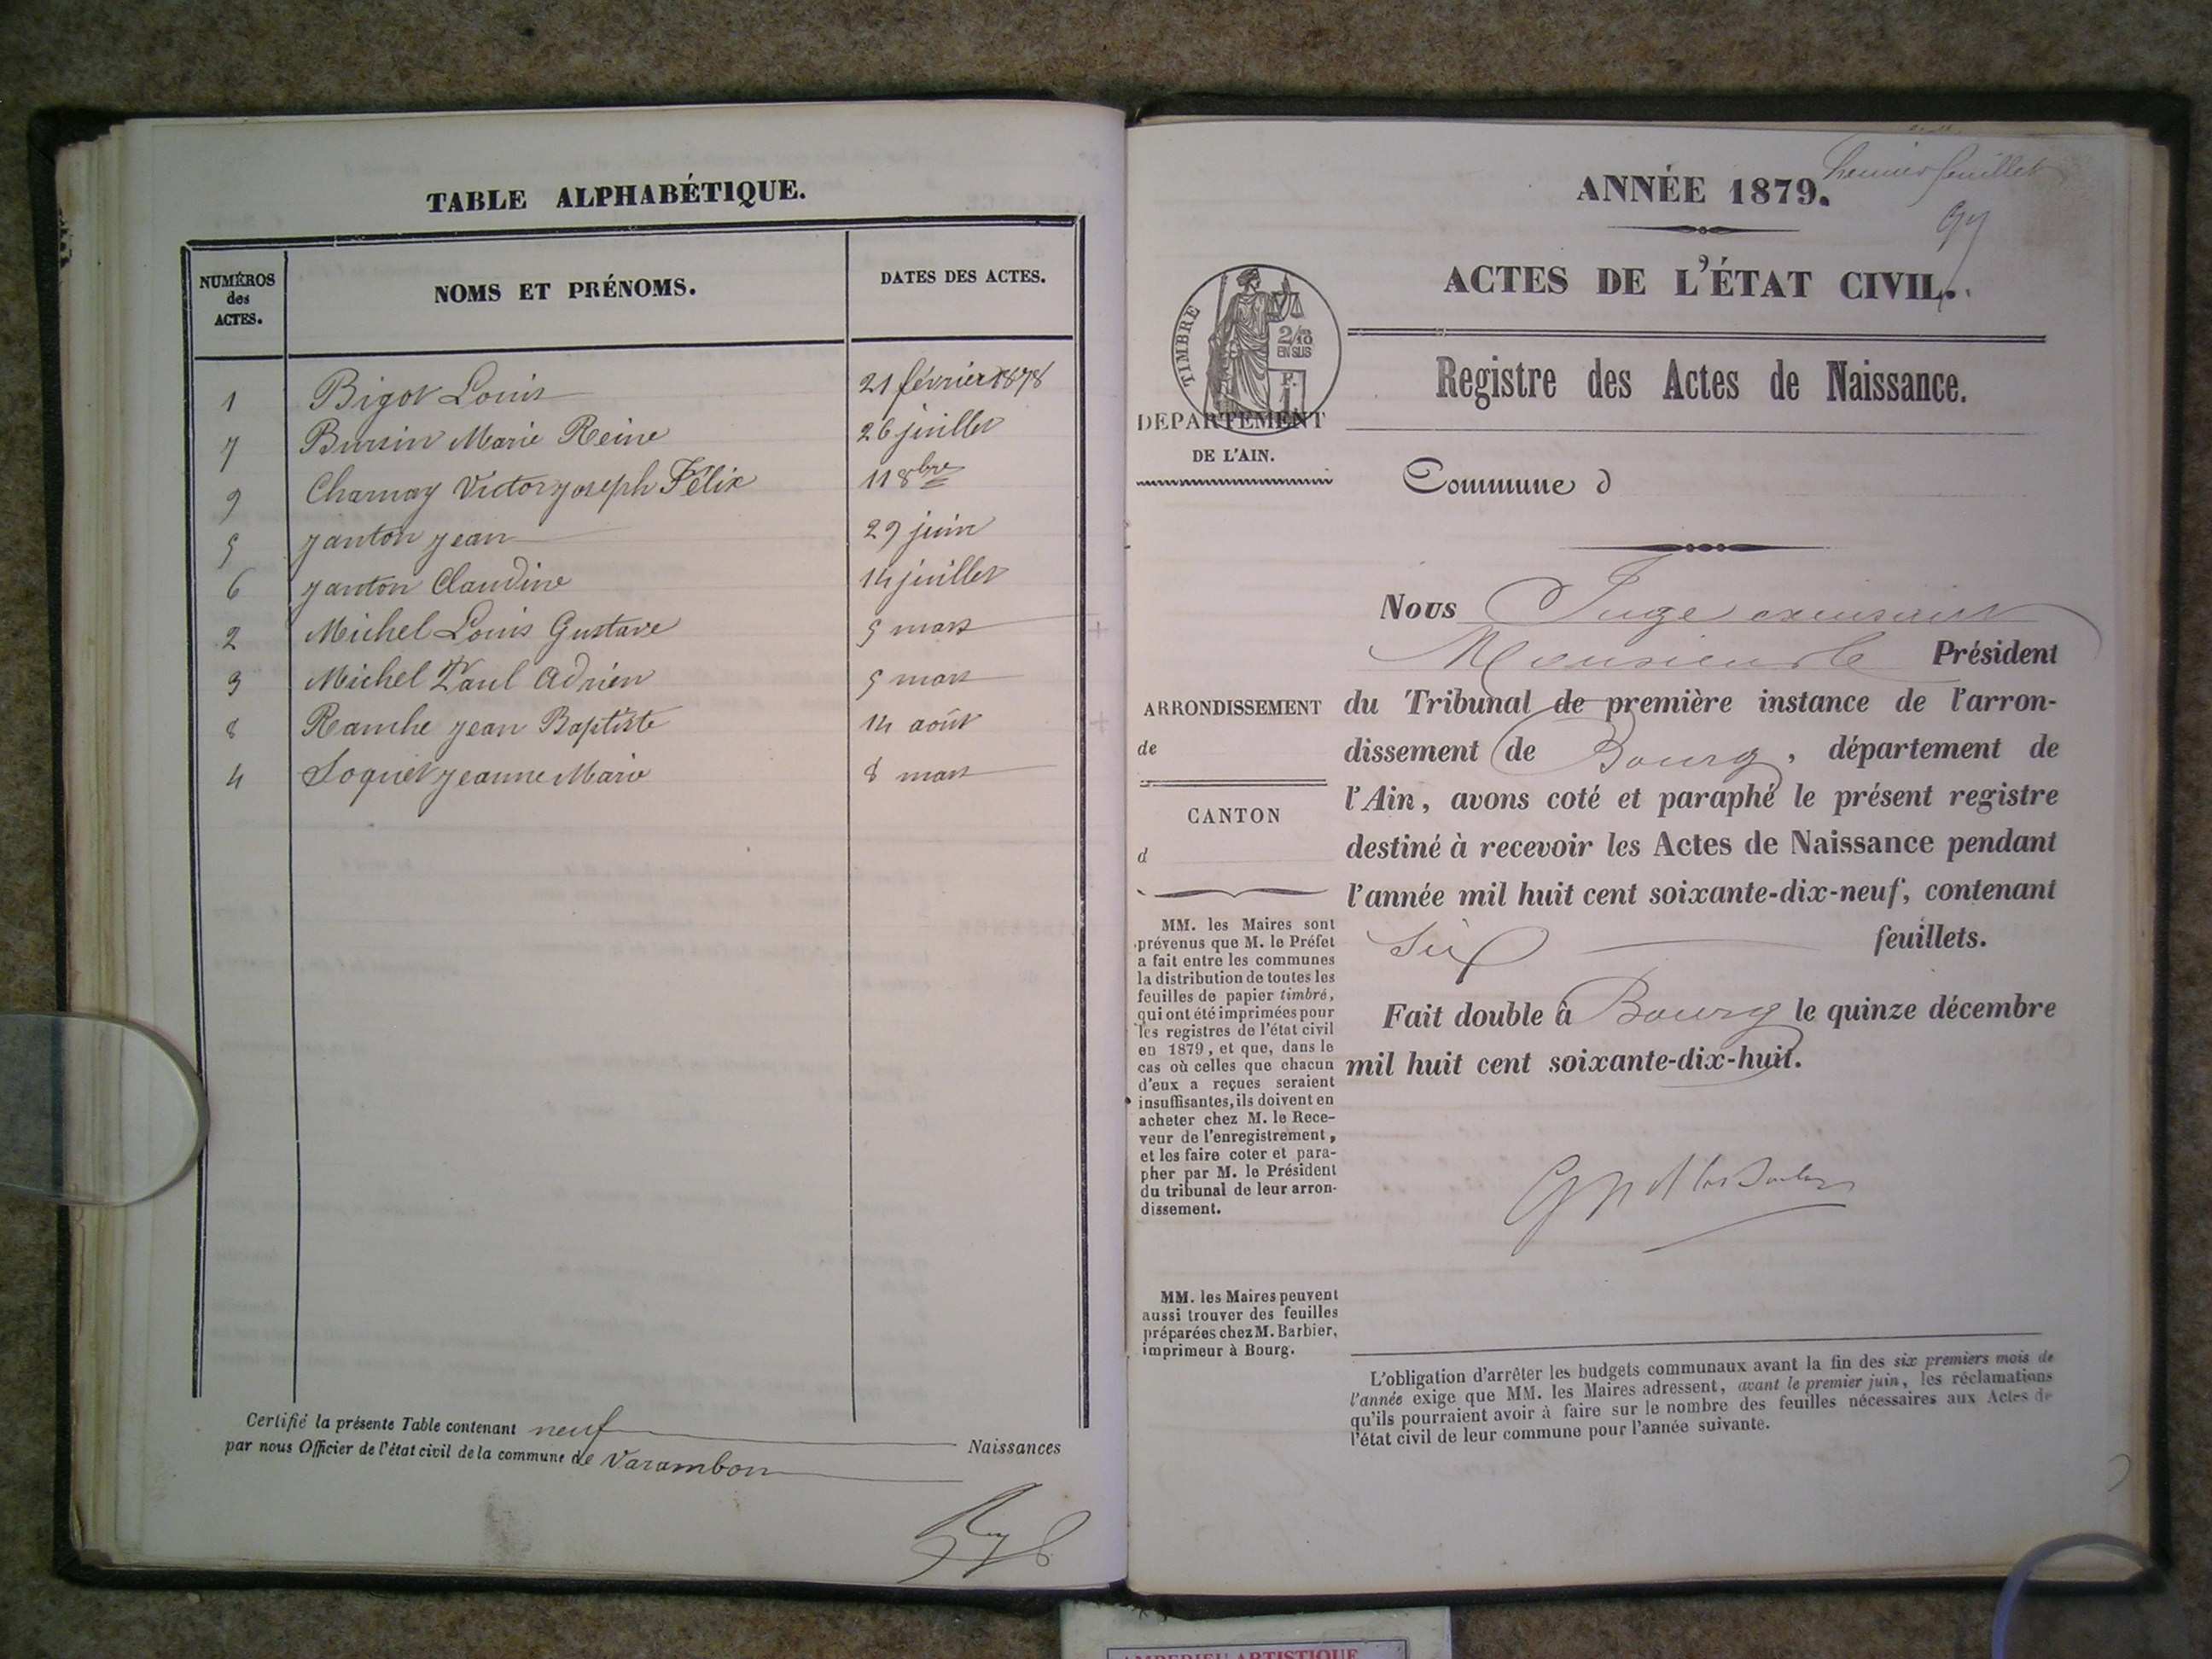 TABLE ALPHABÉTIQUE.
NUMÉROS des ACTES. NOMS ET PRÉNOMS. DATES DES ACTES.
1 Bigot Louis 21 février 1878
7 Bursin Marie Reine 26 juillet
9 Charnay Victor joseph Félix 11 8bre
5 janton jean 29 juin
6 janton Claudine 14 juillet
2 Michel Louis Gustave 5 mars
3 Michel Paul Adrien 5 mars
8 Ranche jean Baptiste 14 août
4 Soquet jeanne Marie 8 mars
Certifié la présente Table contenant neuf Naissances
par nous Officier de l'état civil de la commune de Varambon
Premier feuillet
ANNÉE 1879.
ACTES DE L'ÉTAT CIVIL.
TIMBRE
2/10
EN SUS
F.
1
Registre des Actes de Naissance.
DEPARTEMENT
DE L'AIN.
Commune d
Nous Juge
Monsieur le Président
du Tribunal de première instance de l'arron-
dissement de Bourg, département de
l'Ain, avons coté et paraphé le présent registre
destiné à recevoir les Actes de Naissance pendant
l'année mil huit cent soixante-dix-neuf, contenant
Six feuillets.
Fait double à Bourg le quinze décembre
mil huit cent soixante-dix-huit.
ARRONDISSEMENT
de
CANTON
d
MM. les Maires sont
prévenus que M. le Préfet
a fait entre les communes
la distribution de toutes les
feuilles de papier timbré,
qui ont été imprimées pour
les registres de l'état civil
en 1879, et que, dans le
cas où celles que chacun
d'eux a reçues seraient
insuffisantes, ils doivent en
acheter chez M. le Rece-
veur de l'enregistrement,
et les faire coter et para-
pher par M. le Président
du tribunal de leur arron-
dissement.
MM. les Maires peuvent
aussi trouver des feuilles
préparées chez M. Barbier,
imprimeur à Bourg.
L'obligation d'arrêter les budgets communaux avant la fin des six premiers mois de
l'année exige que MM. les Maires adressent, avant le premier juin, les réclamations
qu'ils pourraient avoir à faire sur le nombre des feuilles nécessaires aux Actes de
l'état civil de leur commune pour l'année suivante.
AMBERIEU ARTISTIQUE